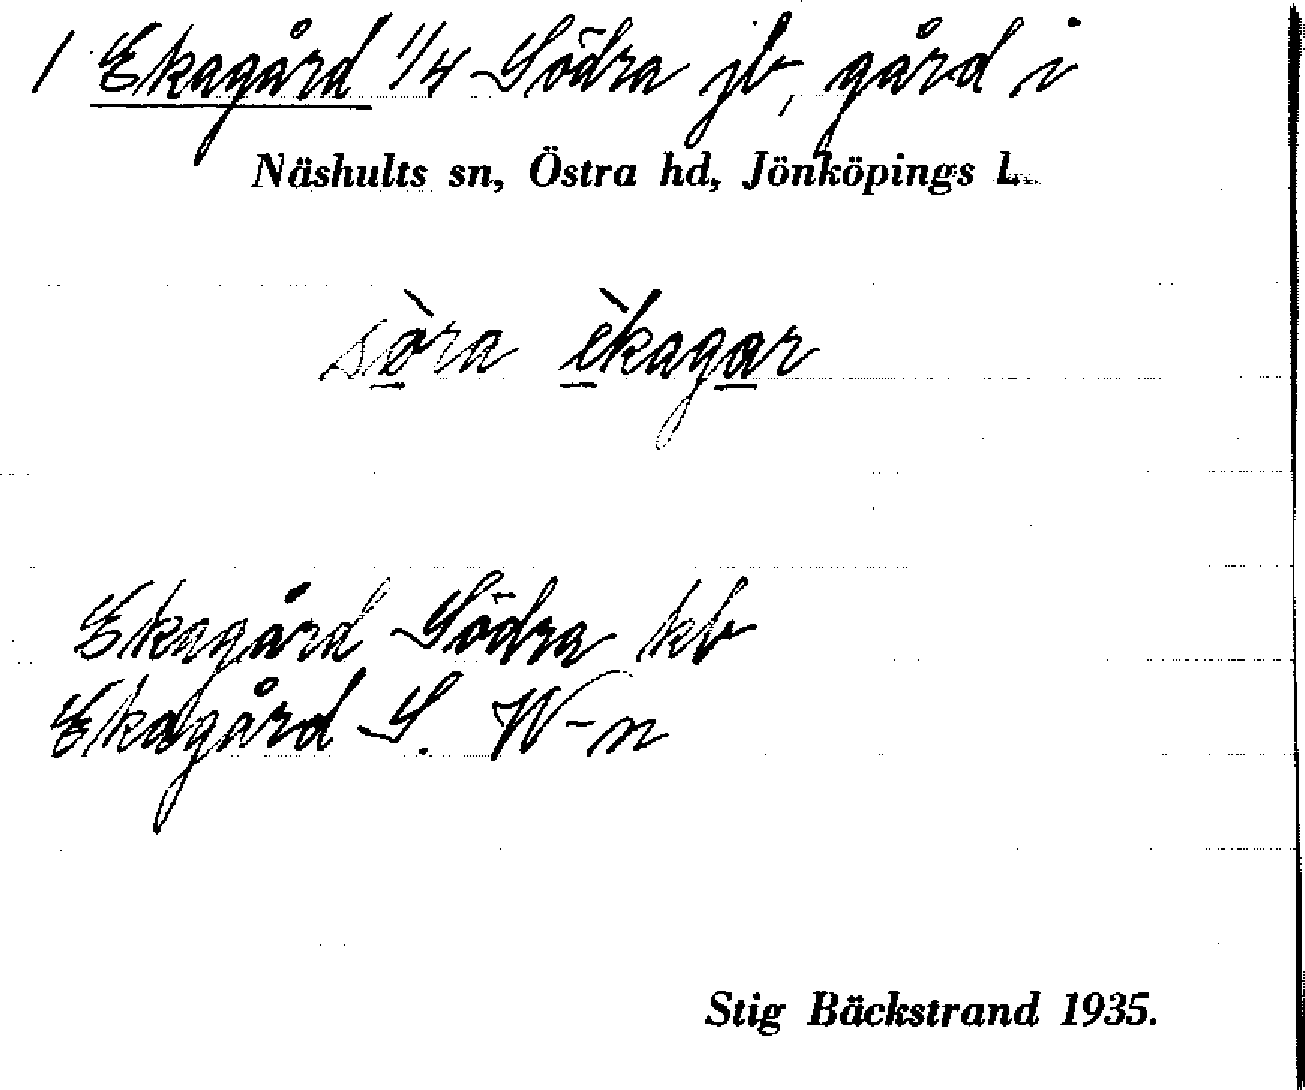 1 Ekagård 1/4 Södra jb, gård i
Näshults sn, Östra hd, Jönköpings l.
sò̠ra è̠kaga̠r
Ekagård Södra kb
Ekagård S. W-n
Stig Bäckstrand 1935.